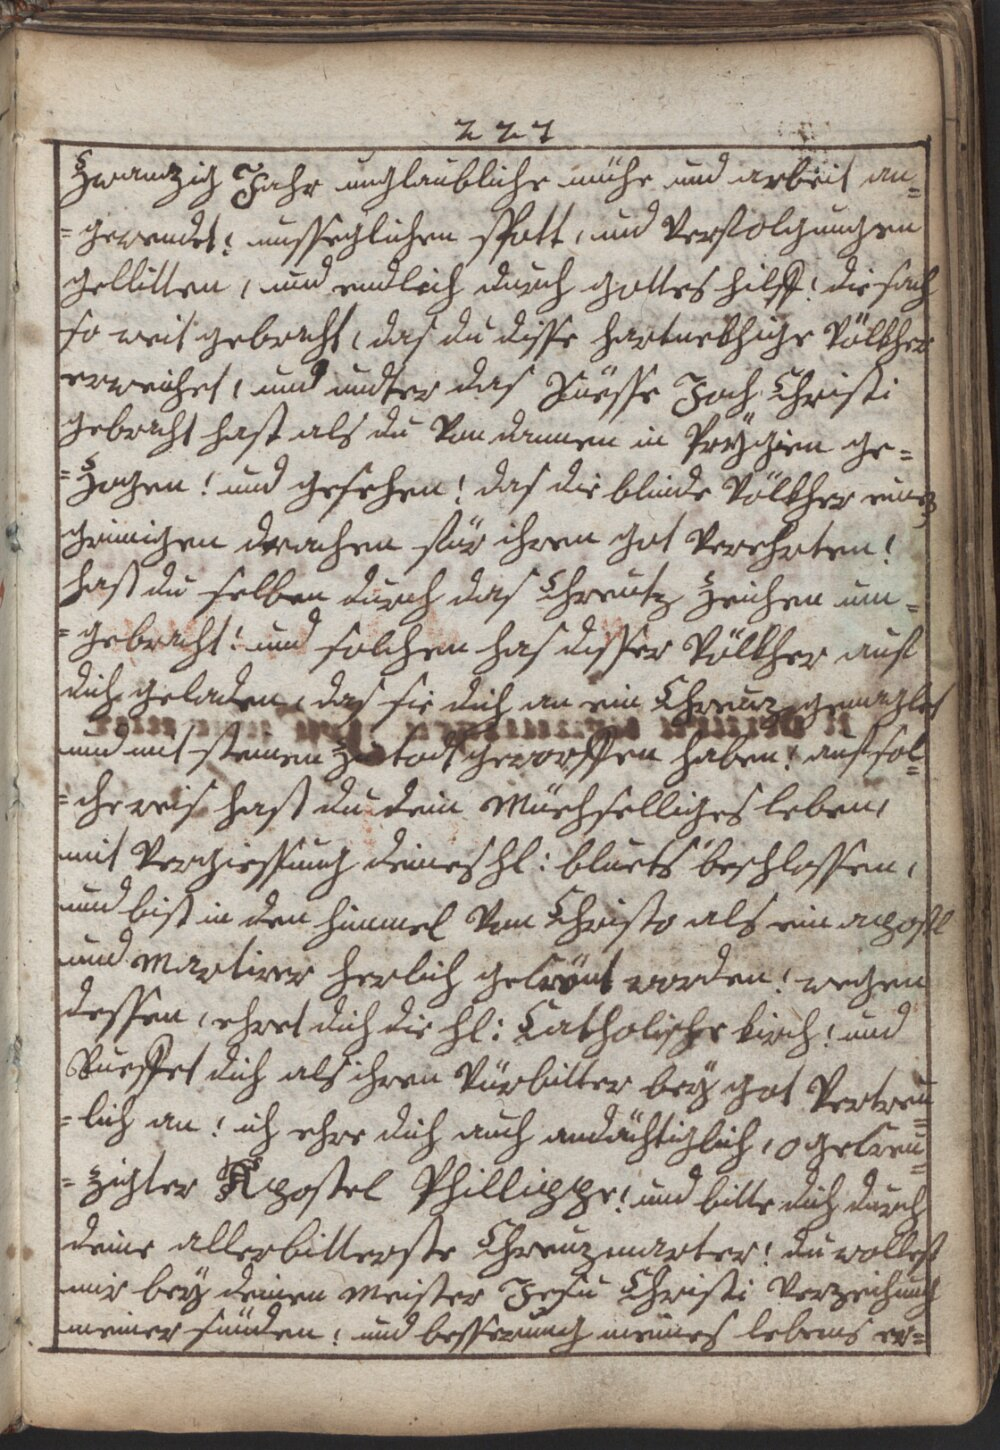 221
Zwantzig Jahr unglaubliche mühe und arbeit an=
=gewendet! unsseglichen spott, und Verfolgungen
gellitten, und endlich durch gottes hilff! die sach
so weit gebracht, das du disse hartnekhige Völkher
erweichet, und undter das Süesse Joch Christi
gebracht hast als du Von dannen in Prÿgien ge=
=zogen! und gesehen! das die blinde Völkher eines
grimigen drachen für ihren got Verehrten!
hast du selben durch das Chreutz zeichen um=
=gebracht! und solchen has disser Völkher auf
dich geladen, das sie dich an ein Chreuz genaglet
und mit steinen zu todt geworffen haben! auf sol=
=che weis hast du dein Müehselliges leben,
mit Vergiessung deines hl: bluets beschlossen,
und bist in den himmel Von Christo als ein apostl
und Martirer herlich gekrönt worden! wegen
dessen, ehret dich die hl: Catholische kirch! und
Rueffet dich als ihren Vürbitter beÿ got Vertreu=
=lich an! ich ehre dich auch andächtiglich, o gekreu=
=zigter Apostel Phillippe! und bitte dich durch
deine allerbitterste Chreuzmarter! du wollest
mir beÿ deinen Meister Jesu Christi Verzeihung
meiner sünden! und besserung meines lebens er=